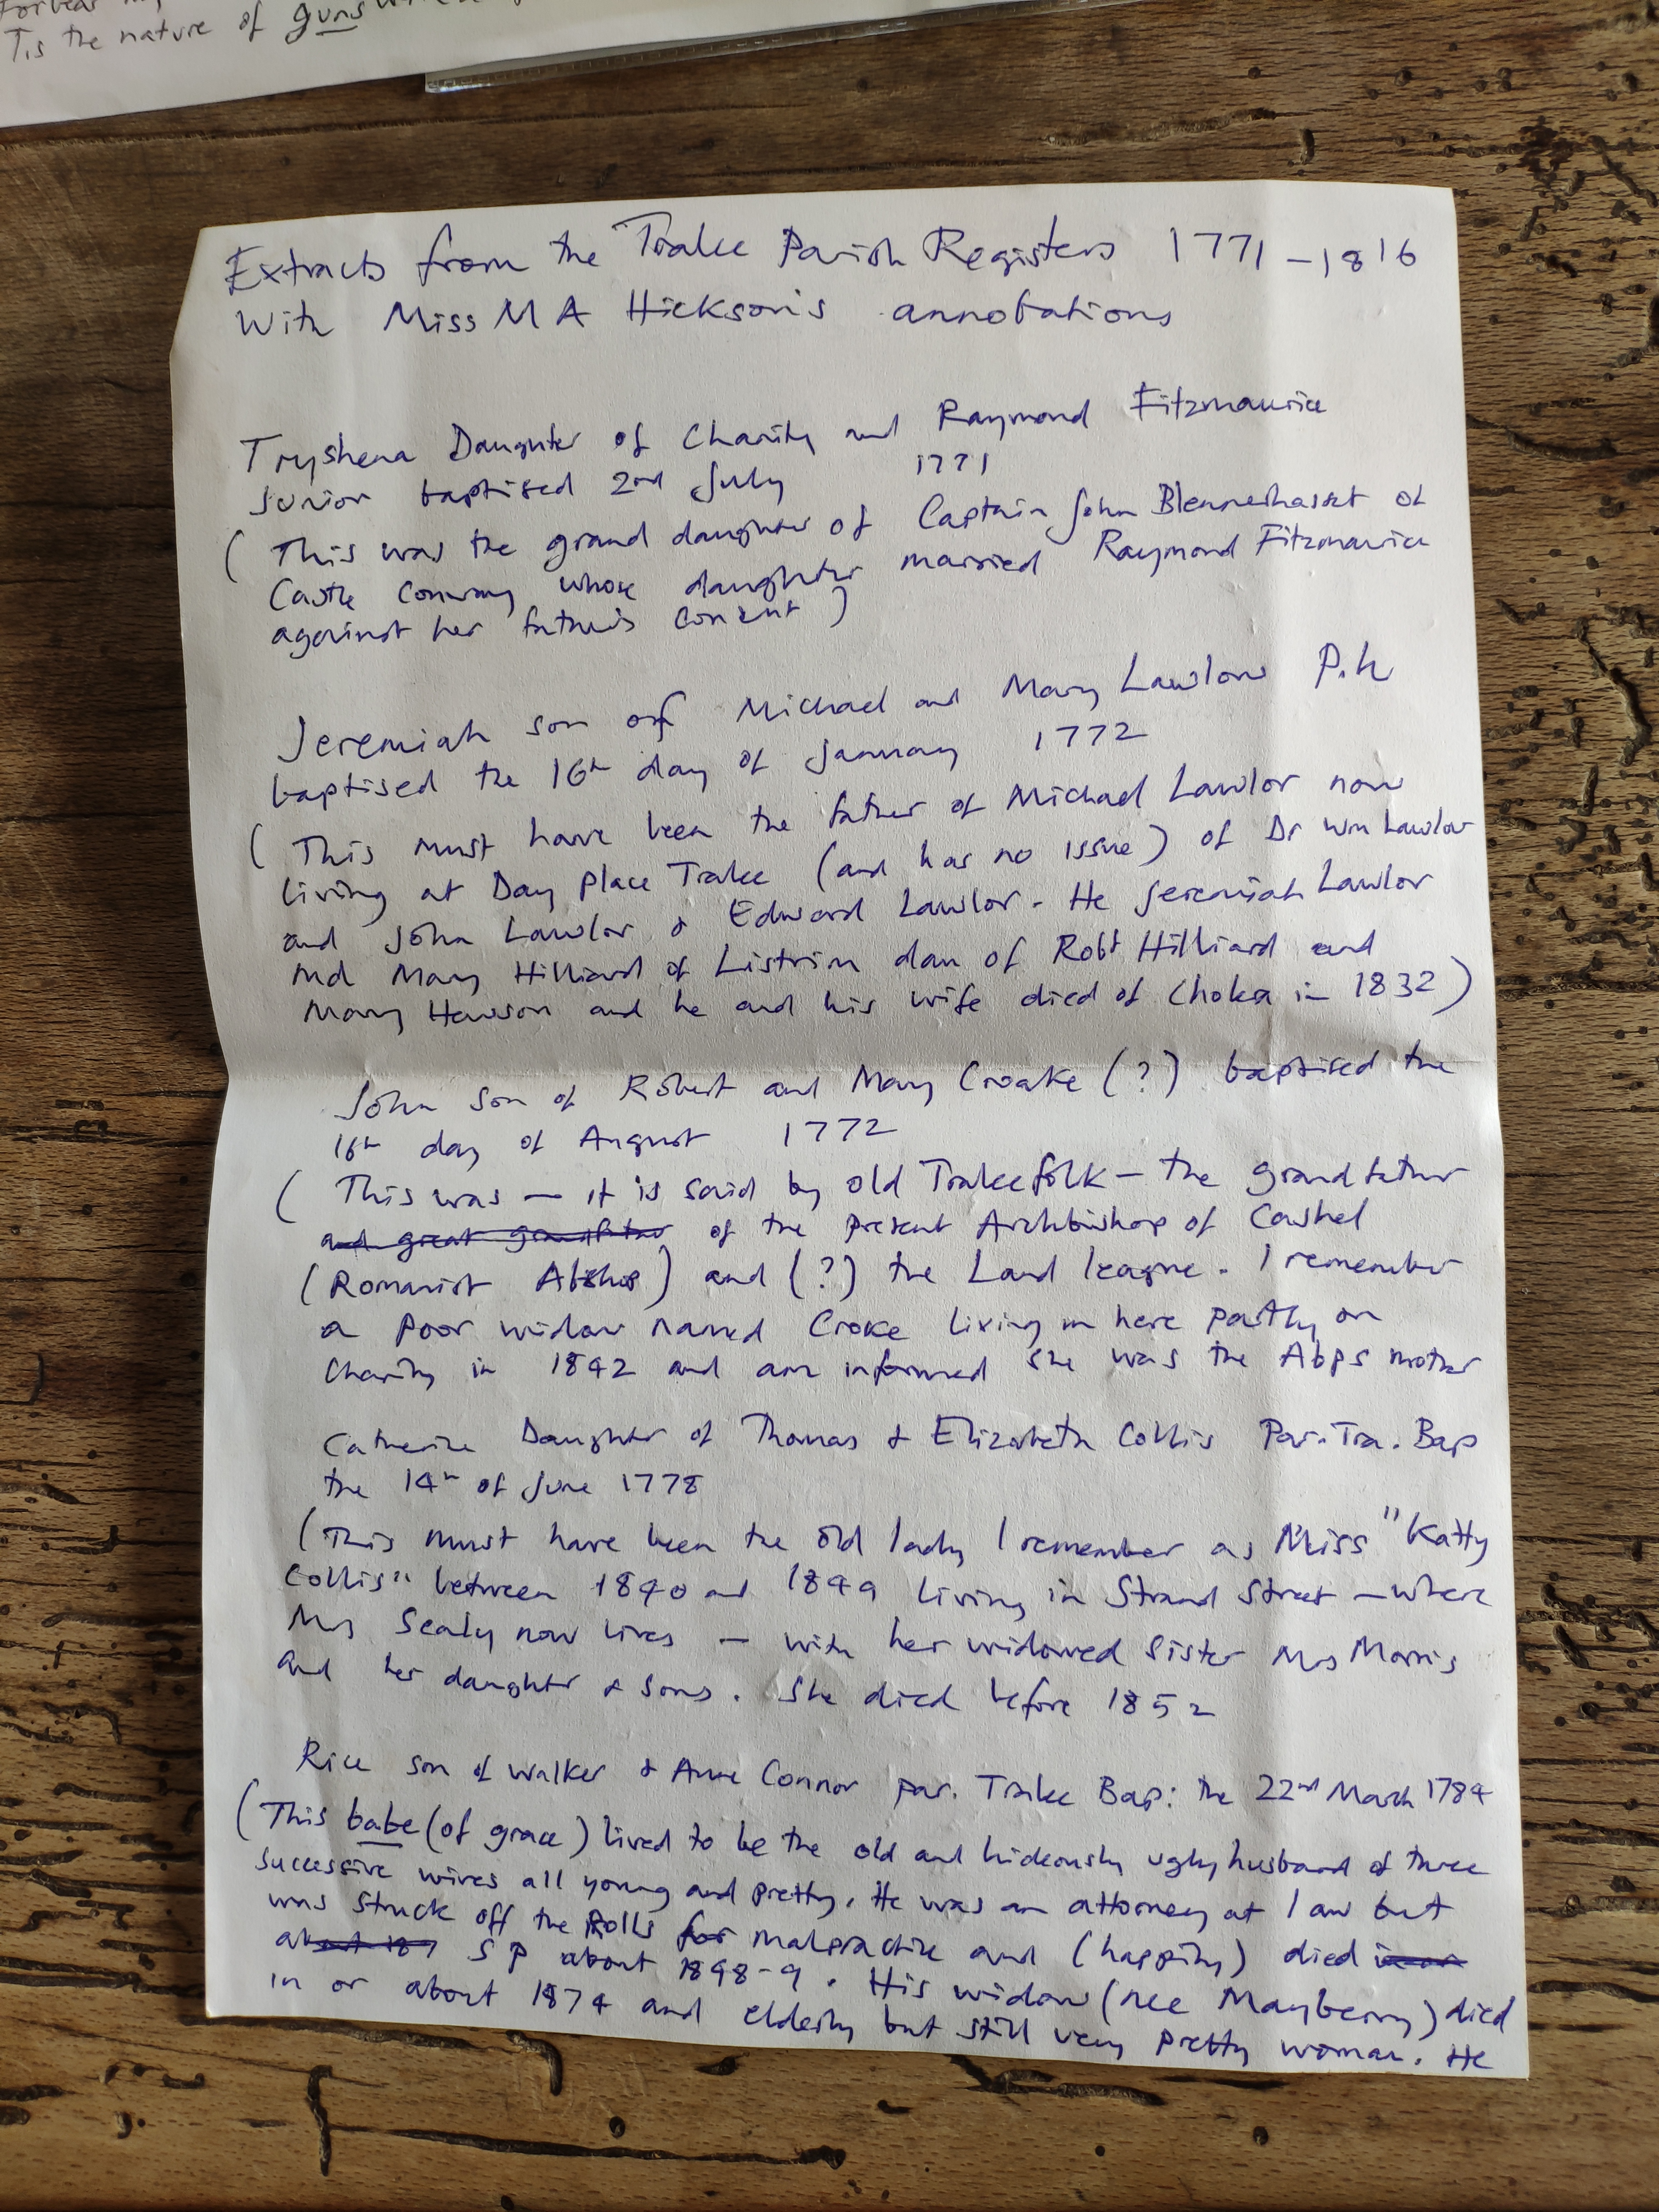 Tis the nature of guns
Extracts from the Tralee Parish Registers 1771-1816
With Miss M A Hickson's annotations
Tryshena Daughter of Charity and Raymond Fitzmaurice
Junior baptised 2nd July 1771
(This was the grand daughter of Captain John Blennerhasset of
Castle Conway whose daughter married Raymond Fitzmaurice
against her father's consent)
Jeremiah son of Michael and Mary Lawlor P.h
baptised the 16th day of January 1772
(This must have been the father of Michael Lawlor now
living at Day Place Tralee (and has no issue) of Dr Wm Lawlor
and John Lawlor & Edward Lawlor. He Jeremiah Lawlor
md Mary Hilliard of Listrim dau of Robt Hilliard and
Mary Hewson and he and his wife died of cholera in 1832)
John son of Robert and Mary Croake (?) baptised the
16th day of August 1772
(This was — it is said by old Tralee folk — the grandfather
and great grandfather of the present Archbishop of Cashel
(Romanist Abshop) and (?) the Land league. I remember
a poor widow named Croke living in here partly on
charity in 1842 and am informed she was the Abps mother
Catherine Daughter of Thomas & Elizabeth Collis Par. Tra. Bap
the 14th of June 1778
(This must have been the old lady I remember as Miss "Katty
Collis" between 1840 and 1849 living in Strand Street — where
Mrs Sealy now lives — with her widowed sister Mrs Morris
and her daughter & sons. She died before 1852
Rice son of Walker & Anne Connor par. Tralee Bap: the 22nd March 1784
(This babe (of grace) lived to be the old and hideously ugly husband of three
successive wives all young and pretty. He was an attorney at law but
was struck off the Rolls for malpractice and (happily) died in or
about 187 S P about 1848-9. His widow (nee Mayberry) died
in or about 1874 and elderly but still very pretty woman. He